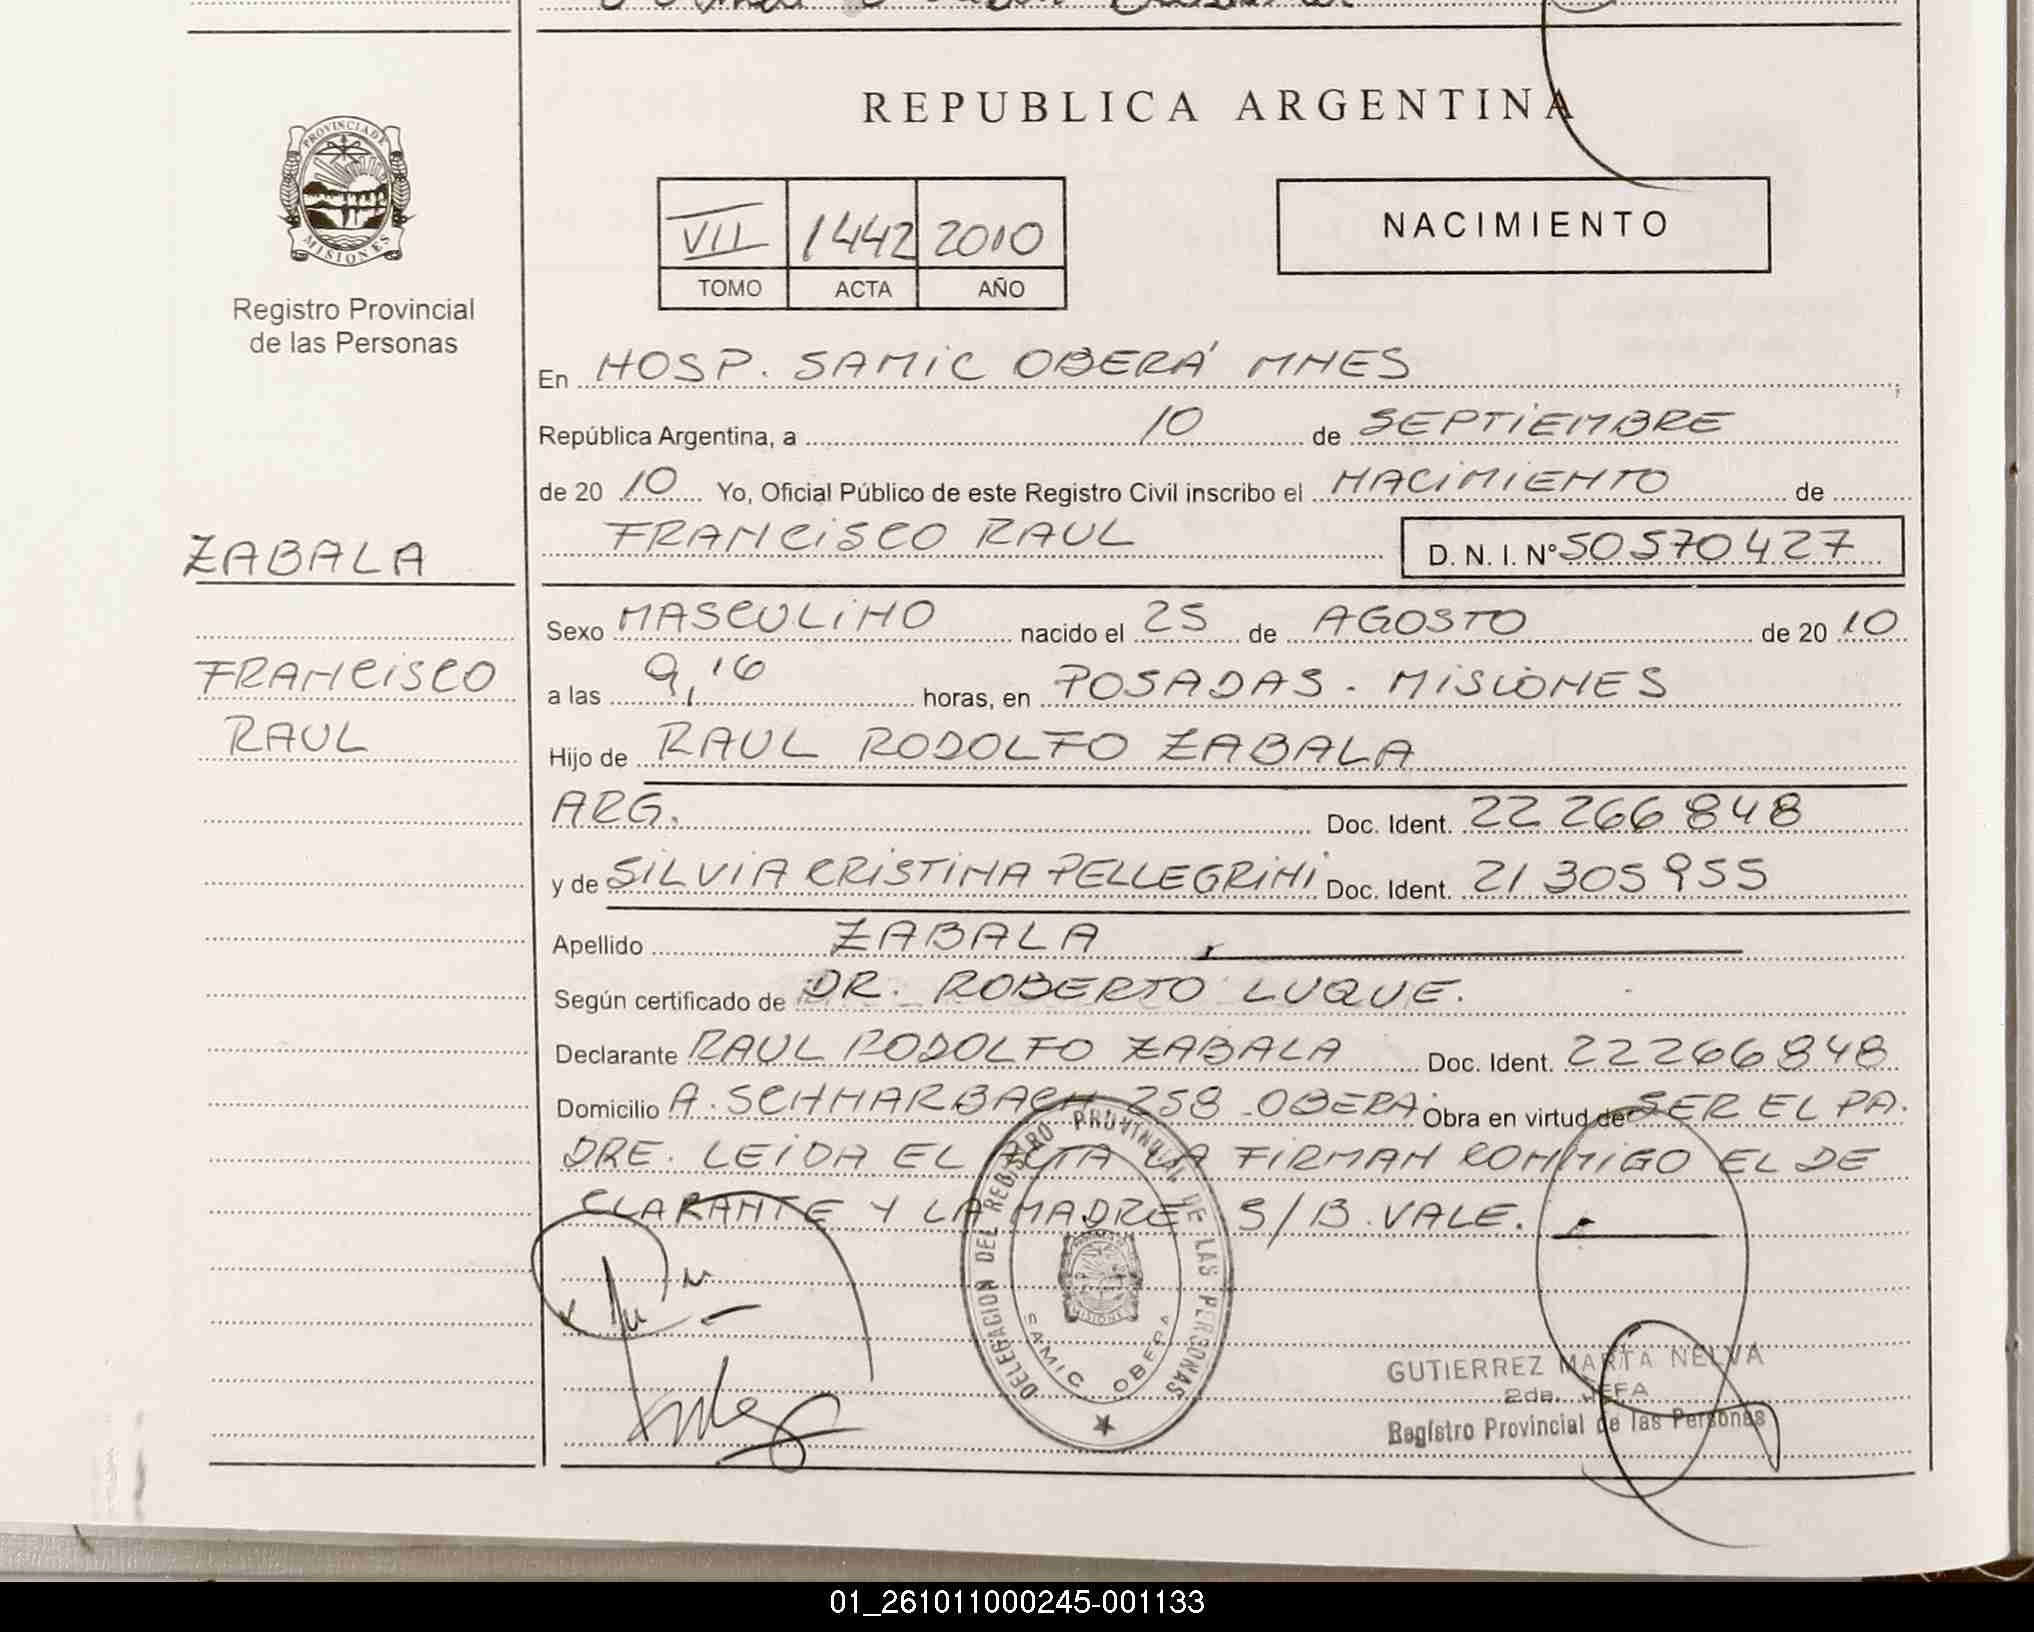 REPUBLICA ARGENTINA
PROVINCIA DE
MISIONES
Registro Provincial
de las Personas
VII 1442 2010
TOMO ACTA AÑO
NACIMIENTO
En HOSP. SAMIC OBERÁ MNES
República Argentina, a 10 de SEPTIEMBRE
de 20 10 Yo, Oficial Público de este Registro Civil inscribo el NACIMIENTO de
ZABALA
FRANCISCO RAUL D. N. I. N° 50570427
Sexo MASCULINO nacido el 25 de AGOSTO de 20 10
FRANCISCO
a las 9,16 horas, en POSADAS - MISIONES
RAUL
Hijo de RAUL RODOLFO ZABALA
ARG. Doc. Ident. 22 266 848
y de SILVIA CRISTINA PELLEGRINI Doc. Ident. 21 305 955
Apellido ZABALA
Según certificado de DR. ROBERTO LUQUE.
Declarante RAUL RODOLFO ZABALA Doc. Ident. 22266848
Domicilio A. SCHNARBACH 258 OBERA. Obra en virtud de SER EL PA.
DRE. LEIDA EL ACTA LA FIRMAN CONMIGO EL DE
CLARANTE Y LA MADRE S/B. VALE.
DELEGACION DEL REGISTRO PROVINCIAL DE LAS PERSONAS
MISIONES
SAMIC OBERA
GUTIERREZ MARTA NELVA
2da. JEFA
Registro Provincial de las Personas
01_261011000245-001133